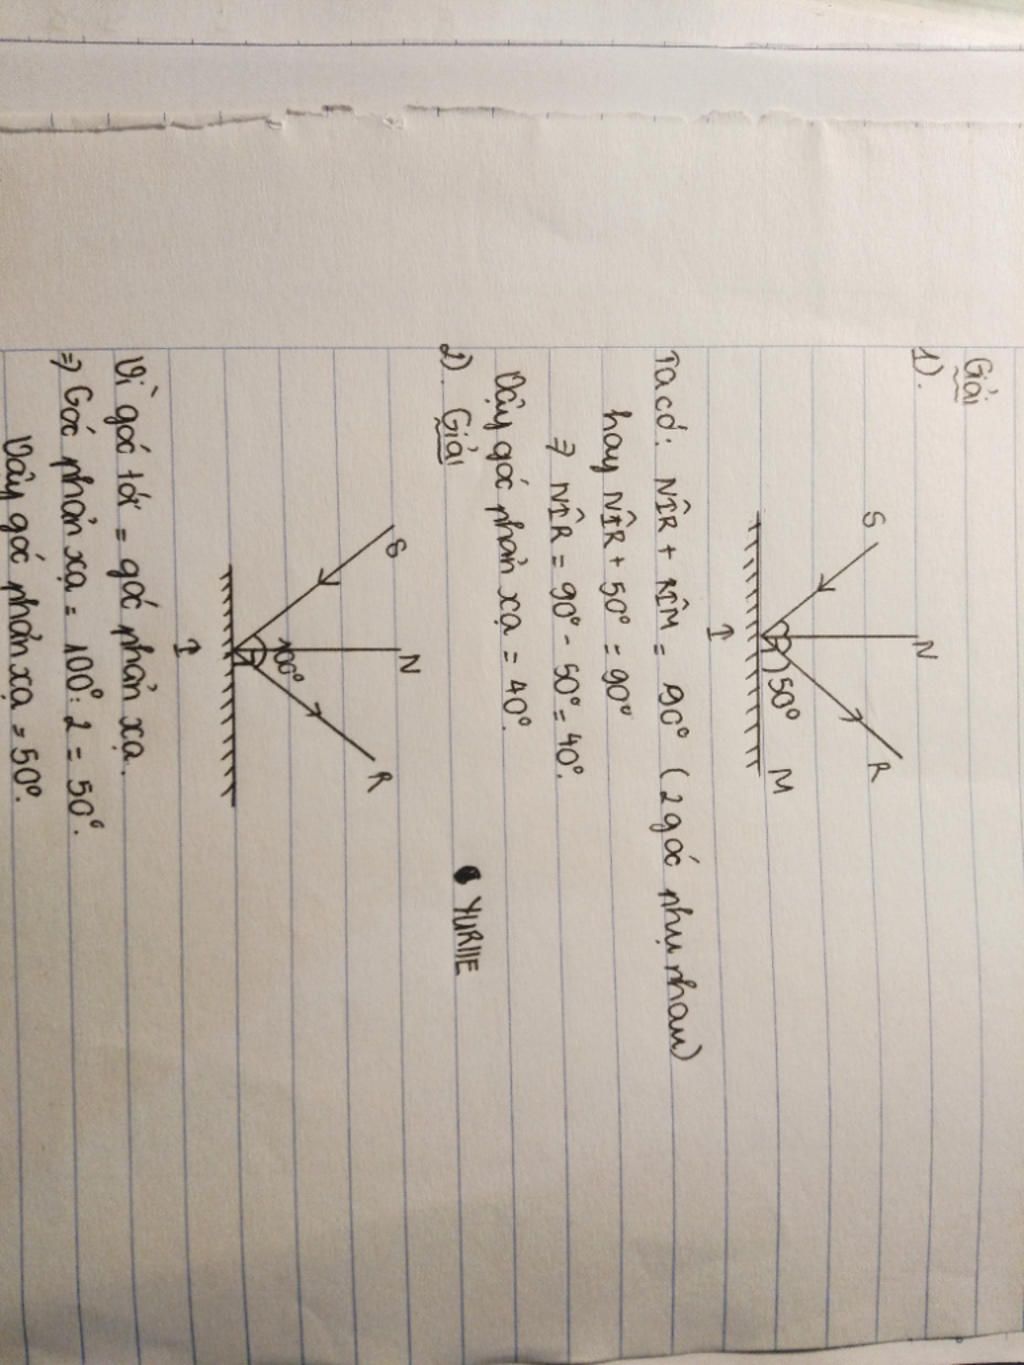 Giải
1).
S
N
R
50°
I
M
Ta có: NÎR + RÎM = 90° (2 góc phụ nhau)
hay NÎR + 50° = 90°
⇒ NÎR = 90° - 50° = 40°.
Vậy góc phản xạ = 40°.
2). Giải
YURIIE
S
N
R
100°
I
Vì góc tới = góc phản xạ.
⇒ Góc phản xạ = 100° : 2 = 50°.
Vậy góc phản xạ = 50°.